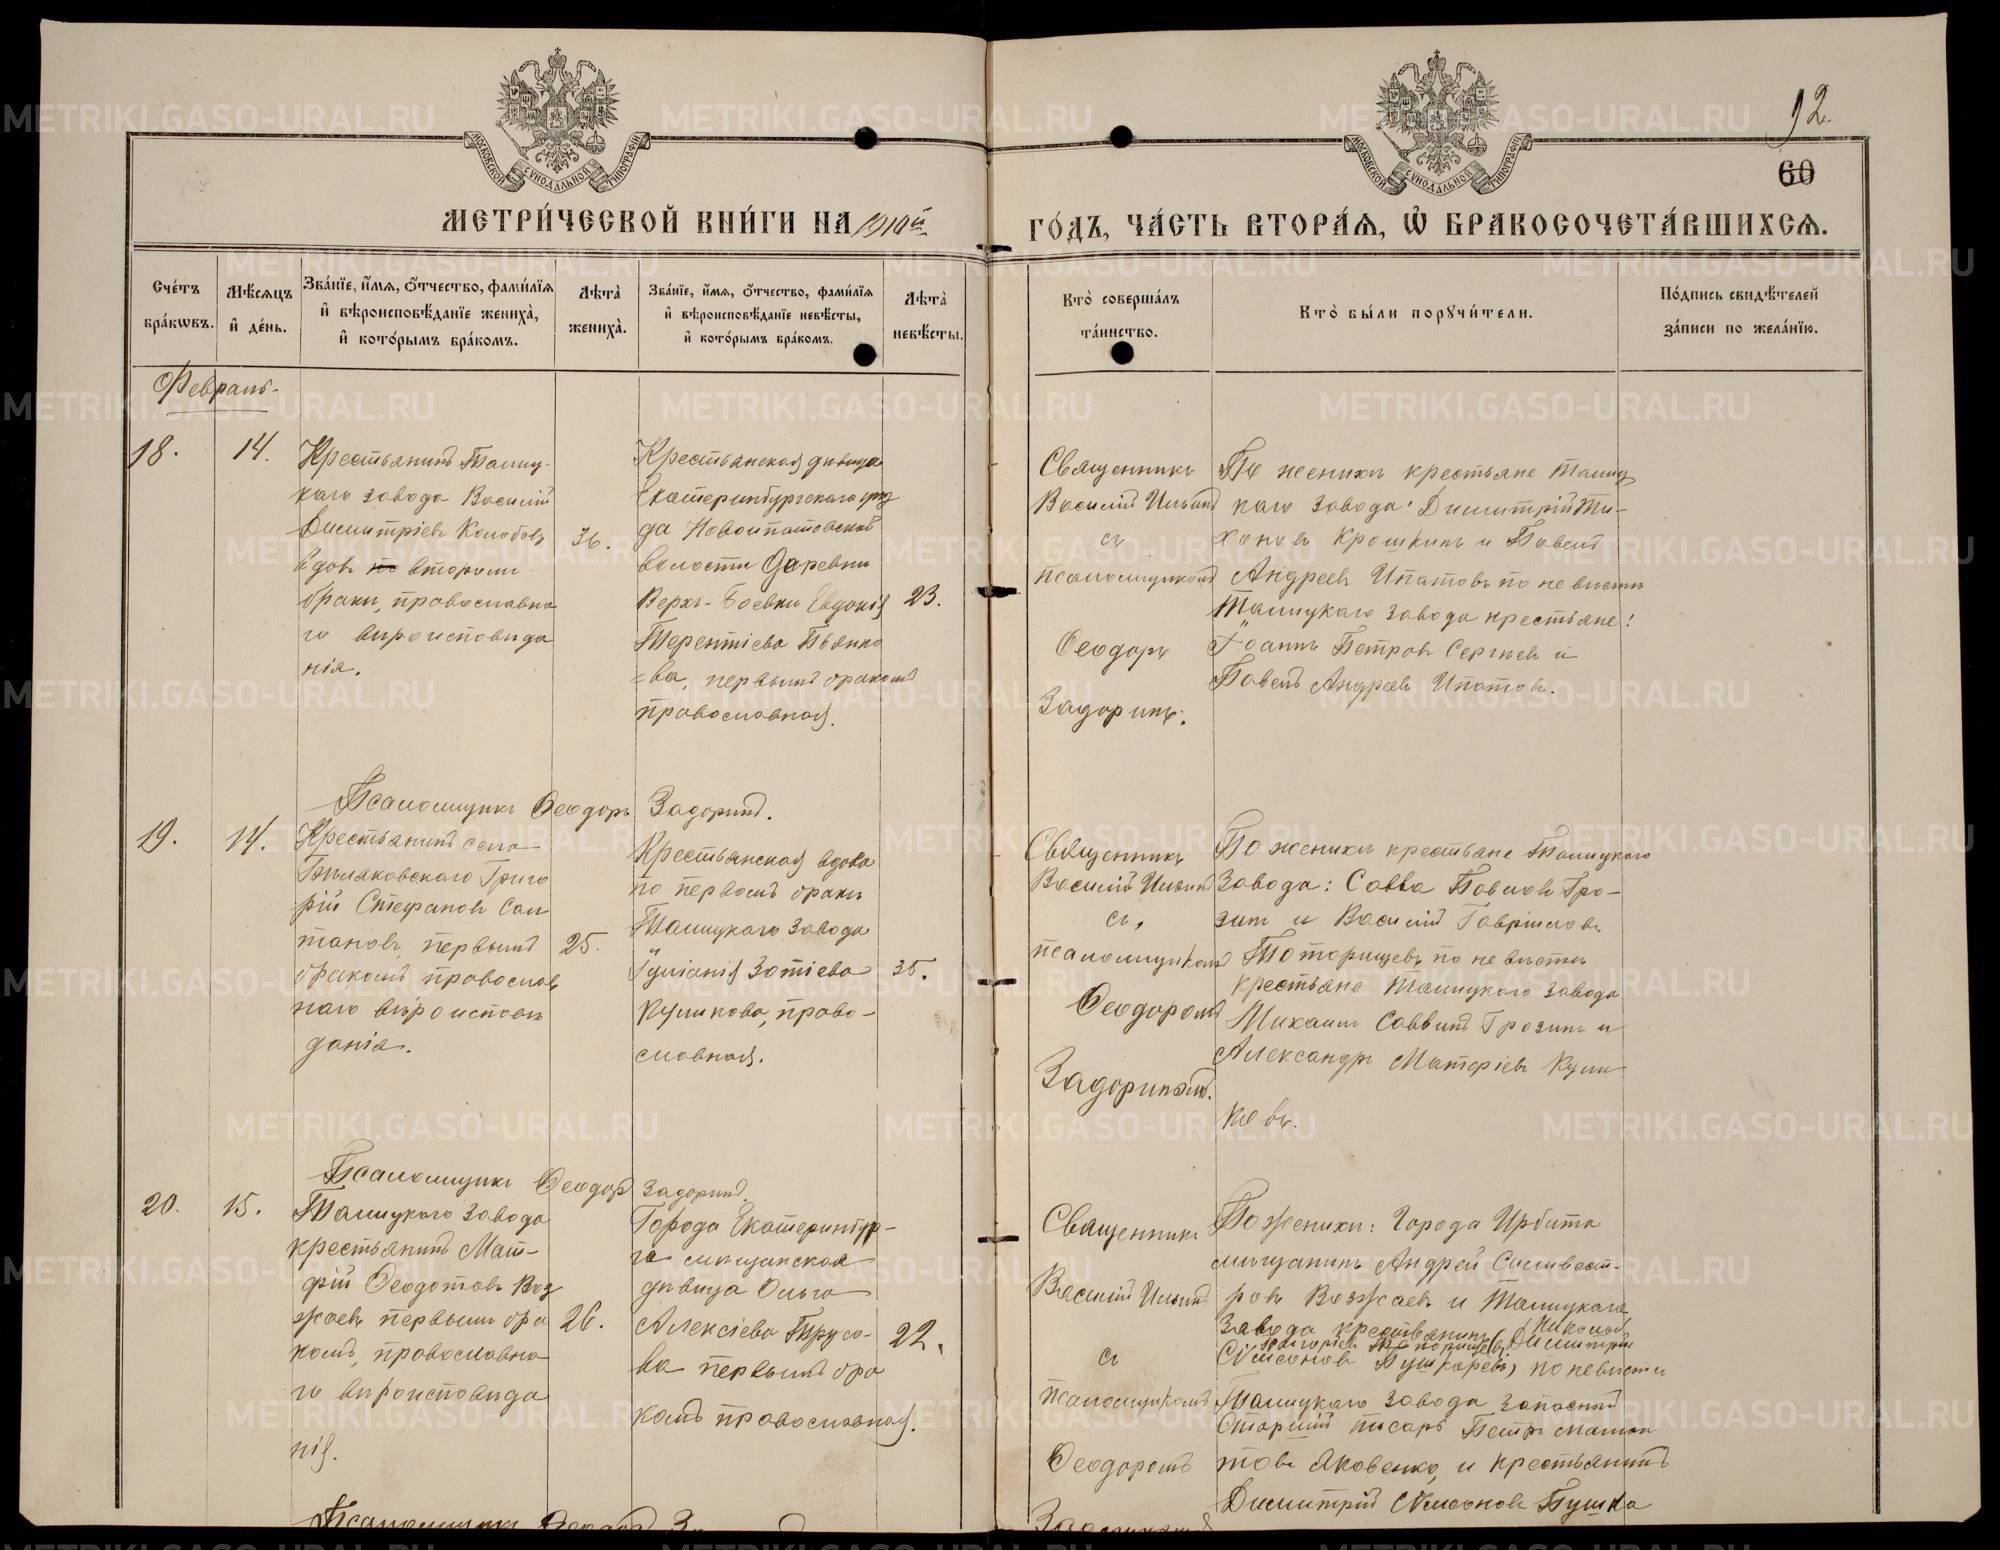 МОСКОВСКОЙ СѴНОДАЛЬНОЙ ТИПОГРАФІИ
МОСКОВСКОЙ СѴНОДАЛЬНОЙ ТИПОГРАФІИ
92
60
МЕТРИ́ЧЕСКОЙ КНИ́ГИ НА 1910й ГО́ДЪ, ЧА́СТЬ ВТОРА́Ѧ, Ѽ БРАКОСОЧЕТА́ВШИХСѦ.
Сче́тъ бра́кѡвъ.
Мѣ́сѧцъ и҆ де́нь.
Зва́нїе, и҆́мѧ, ѻ҆́тчество, фами́лїѧ и҆ вѣроисповѣ́данїе жениха̀, и҆ кото́рымъ бра́комъ.
Лѣта̀ жениха̀.
Зва́нїе, и҆́мѧ, ѻ҆́тчество, фами́лїѧ и҆ вѣроисповѣ́данїе невѣ́сты, и҆ кото́рымъ бра́комъ.
Лѣта̀ невѣ́сты.
Кто̀ соверша́лъ та́инство.
Кто̀ бы́ли порꙋчи́тели.
По́дпись свидѣ́телей за́писи по жела́нїю.
Февраль.
18.
14.
Крестьянинъ Талиц-
каго завода Василій
Димитріевъ Колобовъ
вдовъ по вторым
бракѣ, православна
го вѣроисповѣда
нія.
36.
Крестьянская дѣвица
Екатеринбургскаго уѣз
да Новоипатовской
волости Деревни
Верхъ-Боевки Евдокія
Терентіева Пьянко
=ва, первымъ бракомъ
православная.
23.
Священникъ
Василій Ильинъ
съ
псаломщикомъ
Ѳеодоръ
Задоринъ.
По женихѣ крестьяне Талиц
каго завода: Димитрій Ти-
хоновъ Крошкинъ и Павелъ
Андреевъ Ипатовъ по невѣстѣ
Талицкаго завода крестьяне:
Іоаннъ Петровъ Сергѣевъ и
Павелъ Андреевъ Ипатовъ.
Псаломщикъ Ѳеодоръ Задоринъ.
19.
14.
Крестьянинъ села
Григо
рій Стефановъ Сал
тановъ, первымъ
бракомъ православ
наго вѣроисповѣ
данія.
25.
Крестьянская вдова
по первомъ бракѣ
Талицкаго завода
Іуліанія Зотіева
Куликова, право-
славная.
35.
Священникъ
Василій Ильинъ
съ
псаломщикомъ
Ѳеодоромъ
Задоринымъ.
По женихѣ крестьяне Талицкаго
Завода: Савва Павловъ Гро-
зинъ и Василій Гавріиловъ
Топорищевъ по невѣстѣ
крестьяне Талицкаго завода
Михаилъ Саввинъ Грозинъ и
Александръ Матфіевъ Кули
ковъ.
Псаломщикъ Ѳеодоръ Задоринъ.
20.
15.
Талицкаго завода
крестьянинъ Мат-
фій Ѳеодотовъ Воз
жаевъ первымъ бра
комъ, православна
го вѣроисповѣда
нія.
26.
Города Екатеринбур-
га мѣщанская
дѣвица Ольга
Алексіева Трусо-
ва первымъ бра
комъ православная.
22.
Священникъ
Василій Ильинъ
съ
псаломщикомъ
Ѳеодоромъ
По женихѣ: Города Ирбита
мѣщанинъ Андрей Силивест-
ровъ Возжаевъ и Талицкаго
Завода крестьянинъ Николай
Григоріевъ Топорищевъ Димитрій
Симеоновъ Пушкаревъ, по невѣстѣ
Талицкаго завода запасный
Старшій писарь Петръ
Яковенко, и крестьянинъ
Димитрій Симеоновъ Пушка
Псаломщикъ Ѳеодоръ
METRIKI.GASO-URAL.RU